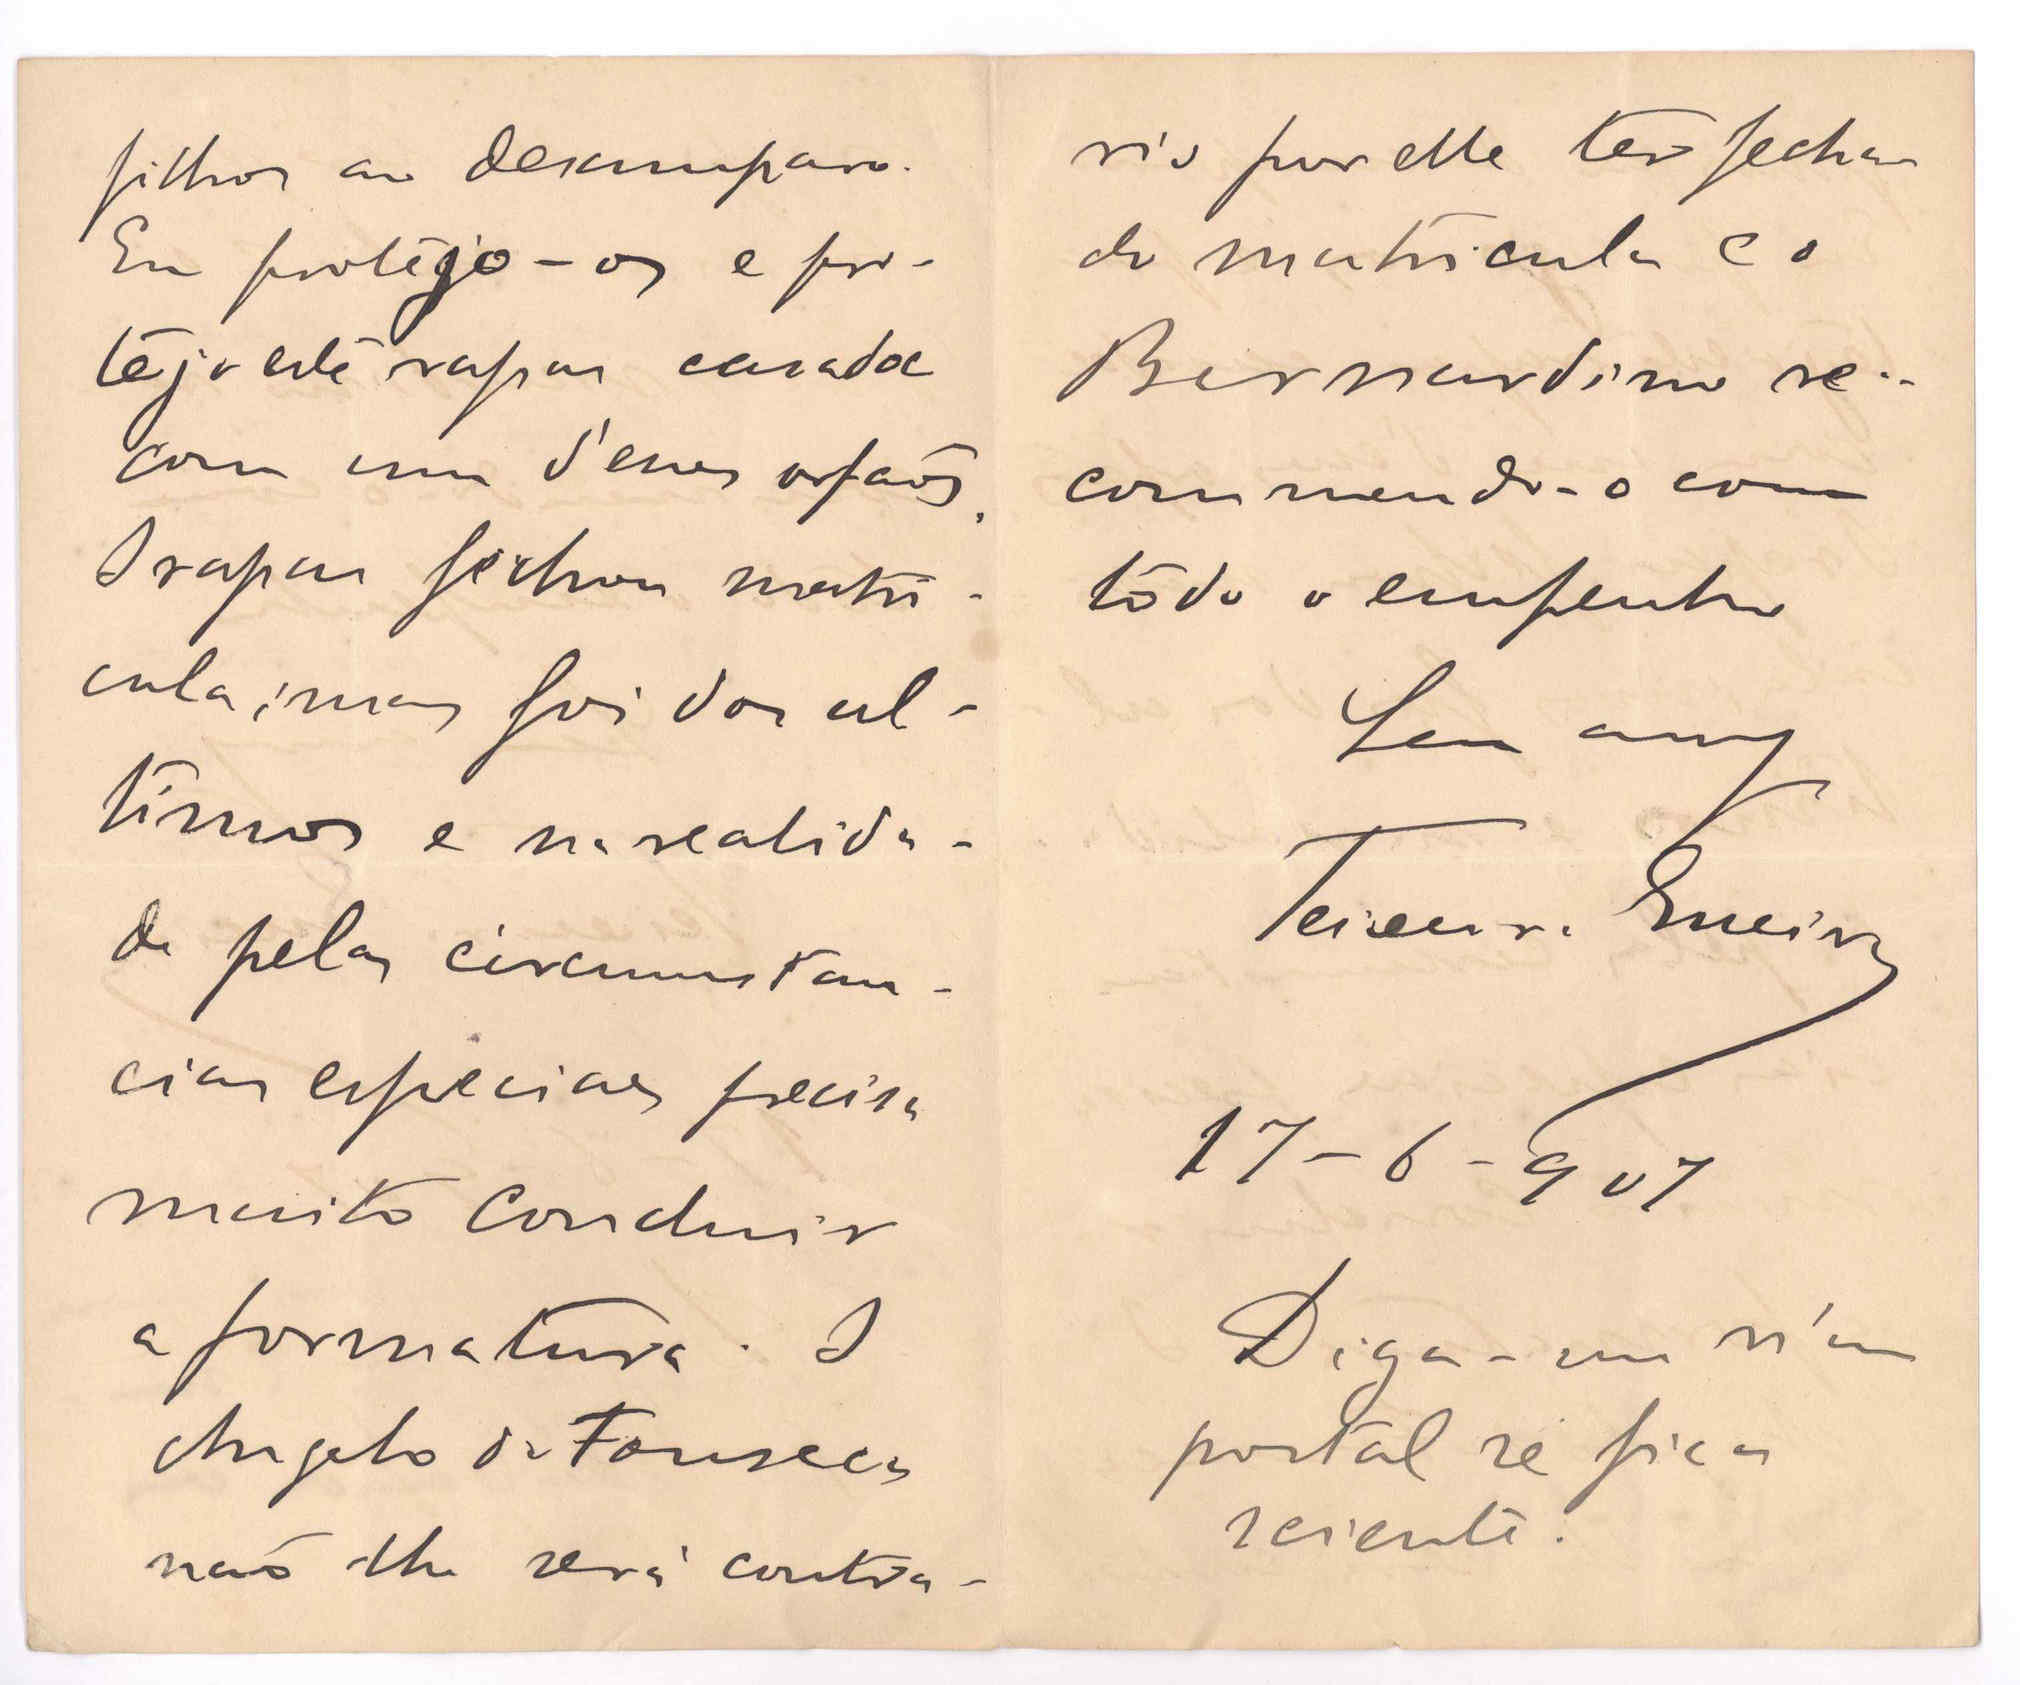 filhos ao desamparo.
Eu protejo-os e pro-
tejo este rapaz casado
com um d'esses orfãos.
O rapaz fechou matri-
cula; mas foi dos ul-
timos e na realida-
de pelas circumstan-
cias especiaes precisa
muito concluir
a formatura. O
Angelo da Fonseca
não lhe será contra-
rio por elle ter fecha
do matricula e o
Bernardino re-
commenda-o com
todo o empenho
Seu amg
Teixeira
17-6-907
Diga-me n'um
postal se fica
sciente.